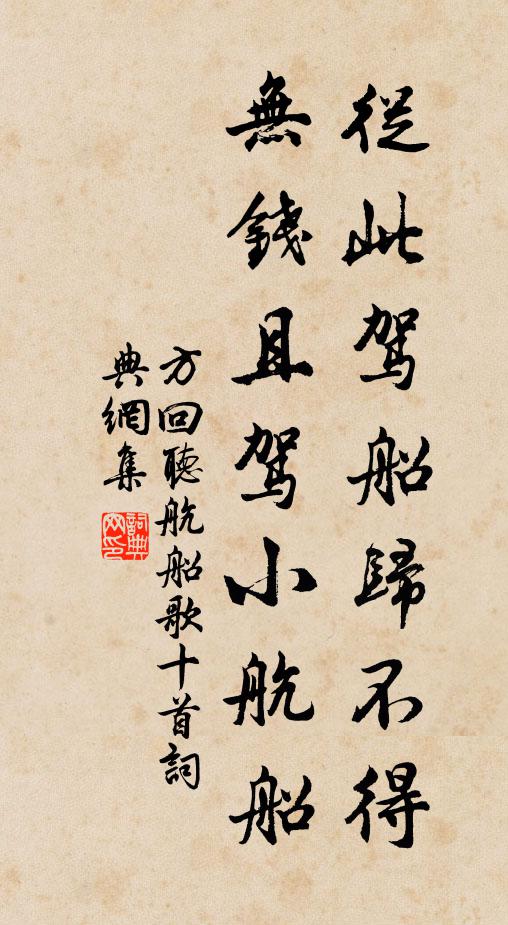 從此駕船歸不得
無錢且駕小航船
方回聽航船歌十首詞
典網集
詞典網印